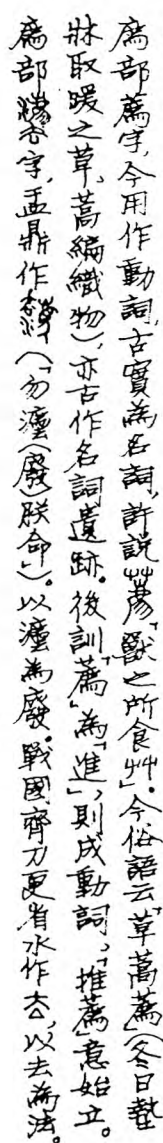 廌部薦字，今用作動詞，古實為名詞，許說薦「獸之所食艸」。今俗語云「草蒿薦」（冬日墊
牀取暖之草，蒿編織物），亦古作名詞遺跡。後訓「薦」為「進」，則成動詞，「推薦」意始立。
廌部灋字，盂鼎作（「勿灋（廢）朕命」）。以灋為廢。戰國齊刀更省水作厺，以去為法。